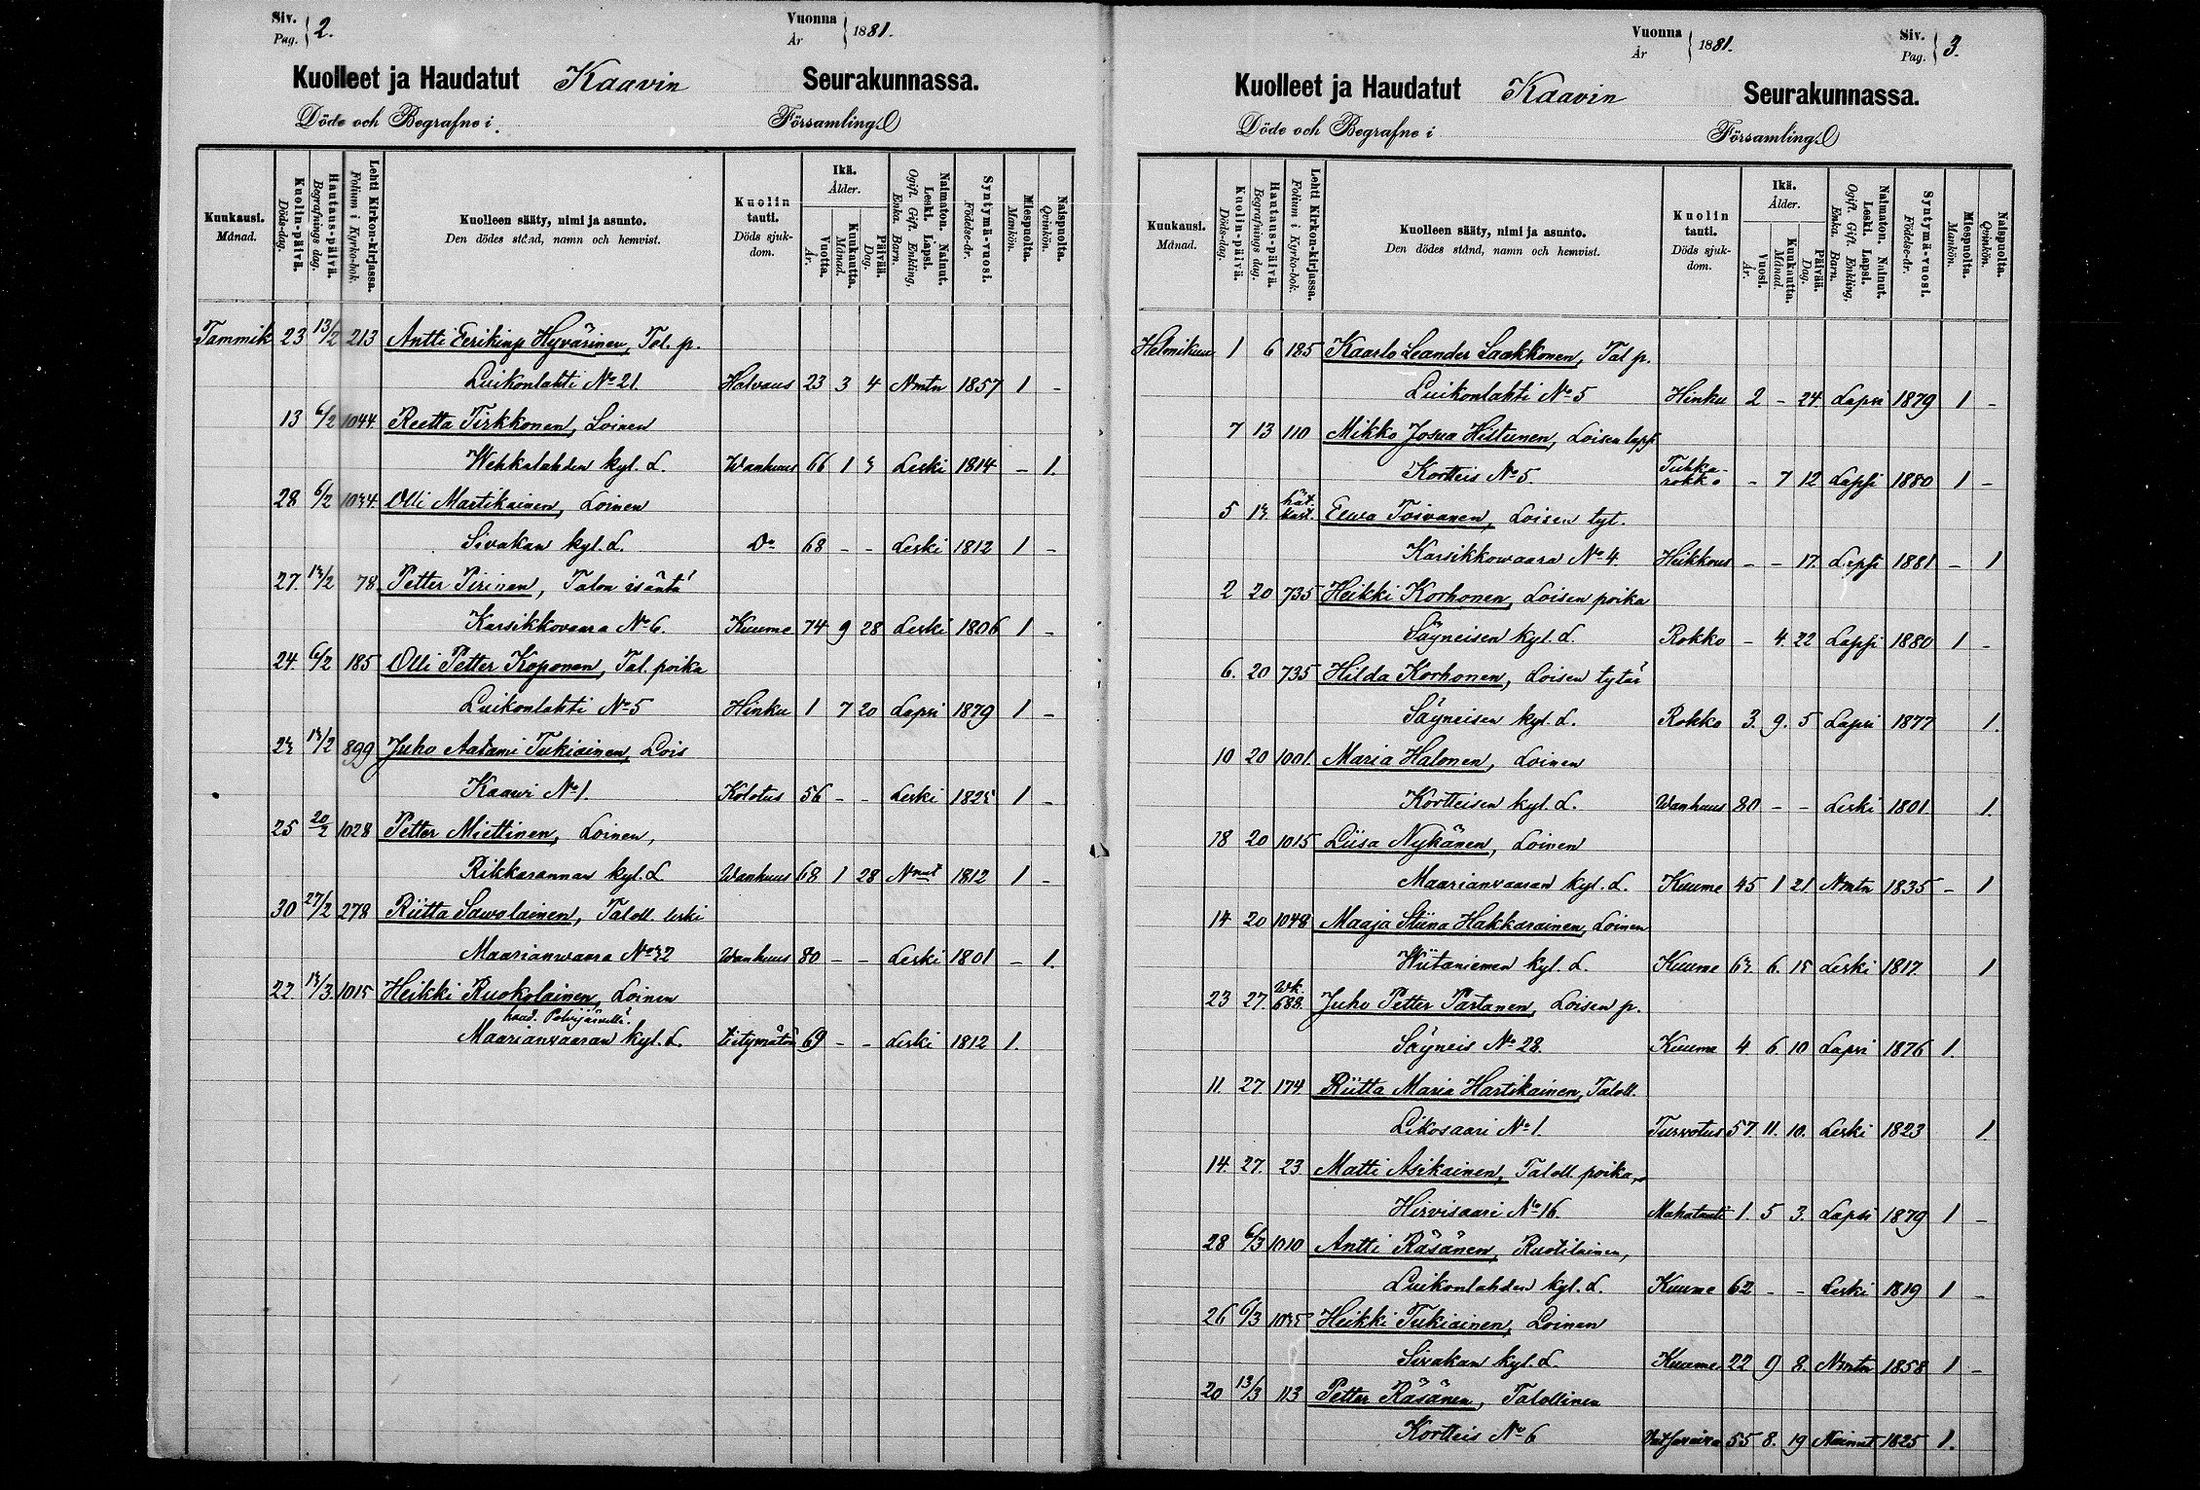 Siv. Pag. } 2.
Vuonna År } 1881.
Kuolleet ja Haudatut Kaavin Seurakunnassa.
Döde och Begrafne i Församling.
Kuukausi. Månad.
Kuolin-päivä. Döds-dag.
Hautaus-päivä. Begrafnings dag.
Lehti Kirkon-kirjassa. Folium i Kyrko-bok.
Kuolleen sääty, nimi ja asunto. Den dödes stånd, namn och hemvist.
Kuolin tauti. Döds sjuk-dom.
Ikä. Ålder.
Vuotta. År.
Kuukautta. Månad.
Päivää. Dag.
Naimaton. Nainut. Leski. Lapsi. Ogift. Gift. Enkling. Enka. Barn.
Syntymä-vuosi. Födelse-år.
Miespuolta. Mankön.
Naispuolta. Qvinkön.
Tammik 23 13/2 213 Antti Eerikinp Hyvärinen, Tal. p.
Luikonlahti No 21. Halvaus 23 3 4 Nmtn 1857 1 -
13 6/2 1044 Reetta Tirkkonen, Loinen
Wehkalahden kyl. L. Wanhuus 66 1 3 Leski 1814 - 1.
28 6/2 1034 Olli Martikainen, Loinen
Sivakan kyl. L. Do 68 - - Leski 1812 1 -
27. 13/2 78 Petter Pirinen, Talon isäntä
Karsikkovaara No 6. Kuume 74 9 28 Leski 1806 1 -
24 6/2 185 Olli Petter Koponen, Tal. poika
Luikonlahti No 5 Hinku 1 7 20 Lapsi 1879 1 -
23 13/2 899 Juho Aatami Tukiainen, Lois
Kaawi No 1. Kolotus 56 - - Leski 1825 1 -
25 20/2 1028 Petter Miettinen, Loinen,
Rikkarannan kyl. L. Wanhuus 68 1 28 Nnut 1812 1 -
30 27/2 278 Riitta Sawolainen, Taloll leski
Maarianwaara No 32 Wanhuus 80 - - Leski 1801 - 1.
22 13/3 1015 Heikki Ruokolainen, Loinen
haud. Polvijärvellä.
Maarianvaaran kyl. L. tietymätön 69 - - Leski 1812 1.
Vuonna År } 1881.
Siv. Pag. } 3.
Kuolleet ja Haudatut Kaavin Seurakunnassa.
Döde och Begrafne i Församling.
Kuukausi. Månad.
Kuolin-päivä. Döds-dag.
Hautaus-päivä. Begrafnings dag.
Lehti Kirkon-kirjassa. Folium i Kyrko-bok.
Kuolleen sääty, nimi ja asunto. Den dödes stånd, namn och hemvist.
Kuolin tauti. Döds sjuk-dom.
Ikä. Ålder.
Vuosi. År.
Kuukautta. Månad.
Päivää. Dag.
Naimaton. Nainut. Leski. Lapsi. Ogift. Gift. Enkling. Enka. Barn.
Syntymä-vuosi. Födelse-år.
Miespuolta. Mankön.
Naispuolta. Qvinkön.
Helmikuu 1 6 185 Kaarlo Leander Laakkonen, Tal p.
Luikonlahti No 5 Hinku 2 - 24 Lapsi 1879 1 -
7 13 110 Mikko Josua Hiltunen, Loisen laps.
Kortteis No 5. Tuhka-rokko - 7 12 Lapsi 1880 1 -
5 13. hät. kast. Eewa Toivanen, Loisen tyt.
Karsikkowaara No 4. Heikkous - - 17. Lapsi 1881 - 1
2 20 735 Heikki Korhonen, Loisen poika
Säyneisen kyl. L. Rokko - 4. 22 Lapsi 1880 1 -
6. 20 735 Hilda Korhonen, Loisen tytär
Säyneisen kyl. L. Rokko 3. 9. 5 Lapsi 1877 1.
10 20 1001. Maria Halonen, Loinen
Kortteisen kyl. L. Wanhuus 80 - - Leski 1801. 1.
18 20 1015 Liisa Nykänen, Loinen
Maarianvaaran kyl. L. Kuume 45 1 21 Nmtn 1835 - 1
14 20 1048 Maaja Stiina Hakkarainen, Loinen
Wiitaniemen kyl. L. Kuume 63. 6. 15 Leski 1817. 1
23 27. Wk. 688. Juho Petter Partanen, Loisen p.
Säyneis No 28. Kuume 4. 6. 10 Lapsi 1876 1.
11. 27. 174 Riitta Maria Hartikainen, Taloll.
Likosaari No 1. Turvotus 57. 11. 10. Leski 1823 1.
14. 27. 23 Matti Asikainen, Taloll. poika,
Hirvisaari No 16. Mahatauti 1. 5 3. Lapsi 1879 1 -
28 6/3 1010 Antti Räsänen, Ruotilainen,
Luikonlahden kyl. L. Kuume 62 - - Leski 1819 1 -
26 6/3 1035 Heikki Tukiainen, Loinen
Sivakan kyl. L. Kuume 22 9 8. Nmtn 1858 1 -
20 13/3 113 Petter Räsänen, Talollinen
Kortteis No 6 55 8. 19 Nainut 1825 1.